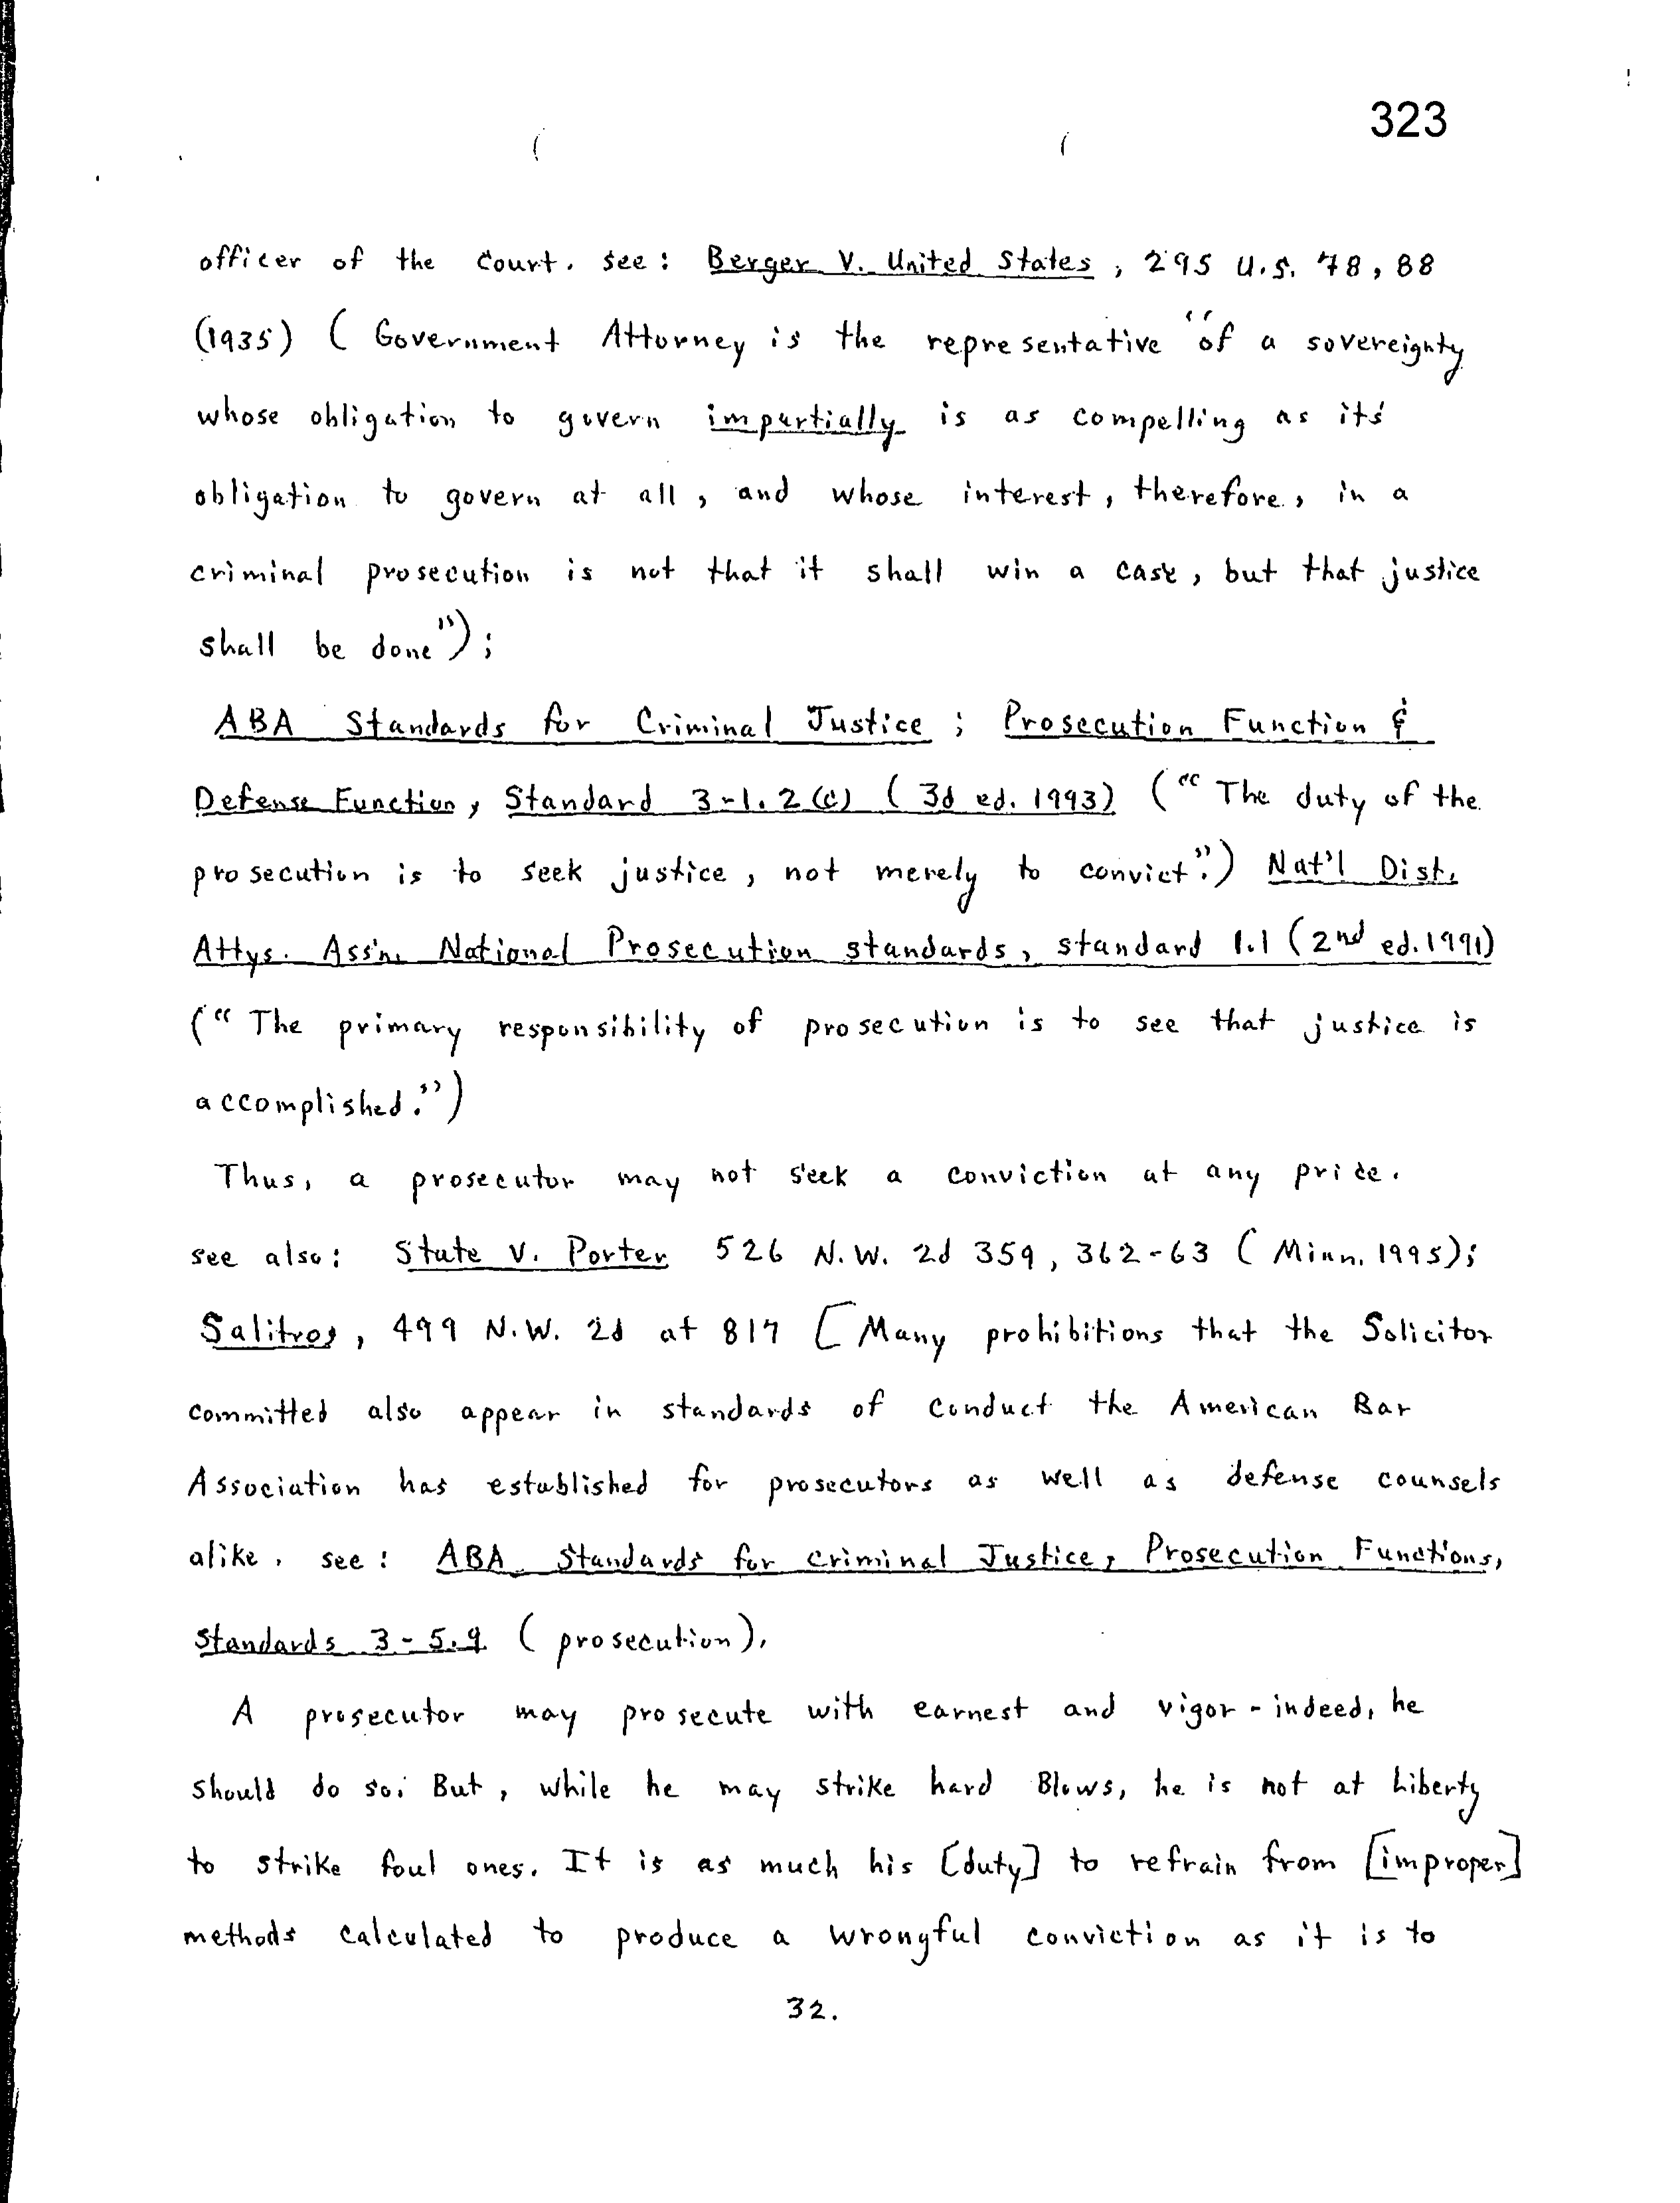 323
officer of the court. see: Berger V. United States, 295 U.S. 78, 88
(1935) ( Government Attorney is the representative "of a sovereignty
whose obligation to govern impartially is as compelling as its
obligation to govern at all, and whose interest, therefore, in a
criminal prosecution is not that it shall win a case, but that justice
shall be done");
ABA Standards for Criminal Justice; Prosecution Function &
Defense Function, Standard 3-1.2(c) ( 3d ed. 1993) (" The duty of the
prosecution is to seek justice, not merely to convict".) Nat'l Dist.
Attys. Ass'n. National Prosecution standards, standard 1.1 (2nd ed. 1991)
(" The primary responsibility of prosecution is to see that justice is
accomplished.")
Thus, a prosecutor may not seek a conviction at any price.
see also: State v. Porter 526 N.W. 2d 359, 362-63 ( Minn. 1995);
Salitros, 499 N.W. 2d at 817 [ Many prohibitions that the Solicitor
committed also appear in standards of conduct the American Bar
Association has established for prosecutors as well as defense counsels
alike. see: ABA Standards for criminal Justice, Prosecution Functions,
Standards 3-5.9 ( prosecution).
A prosecutor may prosecute with earnest and vigor - indeed, he
should do so. But, while he may strike hard Blows, he is not at Liberty
to strike foul ones. It is as much his [duty] to refrain from [improper]
methods calculated to produce a wrongful conviction as it is to
32.